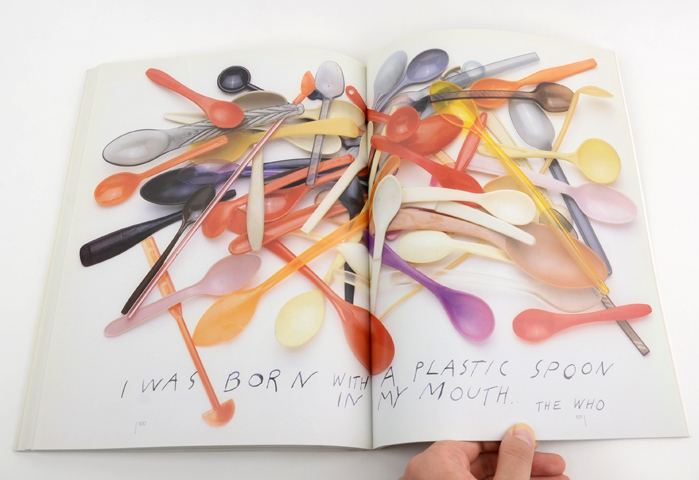 I WAS BORN WITH A PLASTIC SPOON
IN MY MOUTH. THE WHO